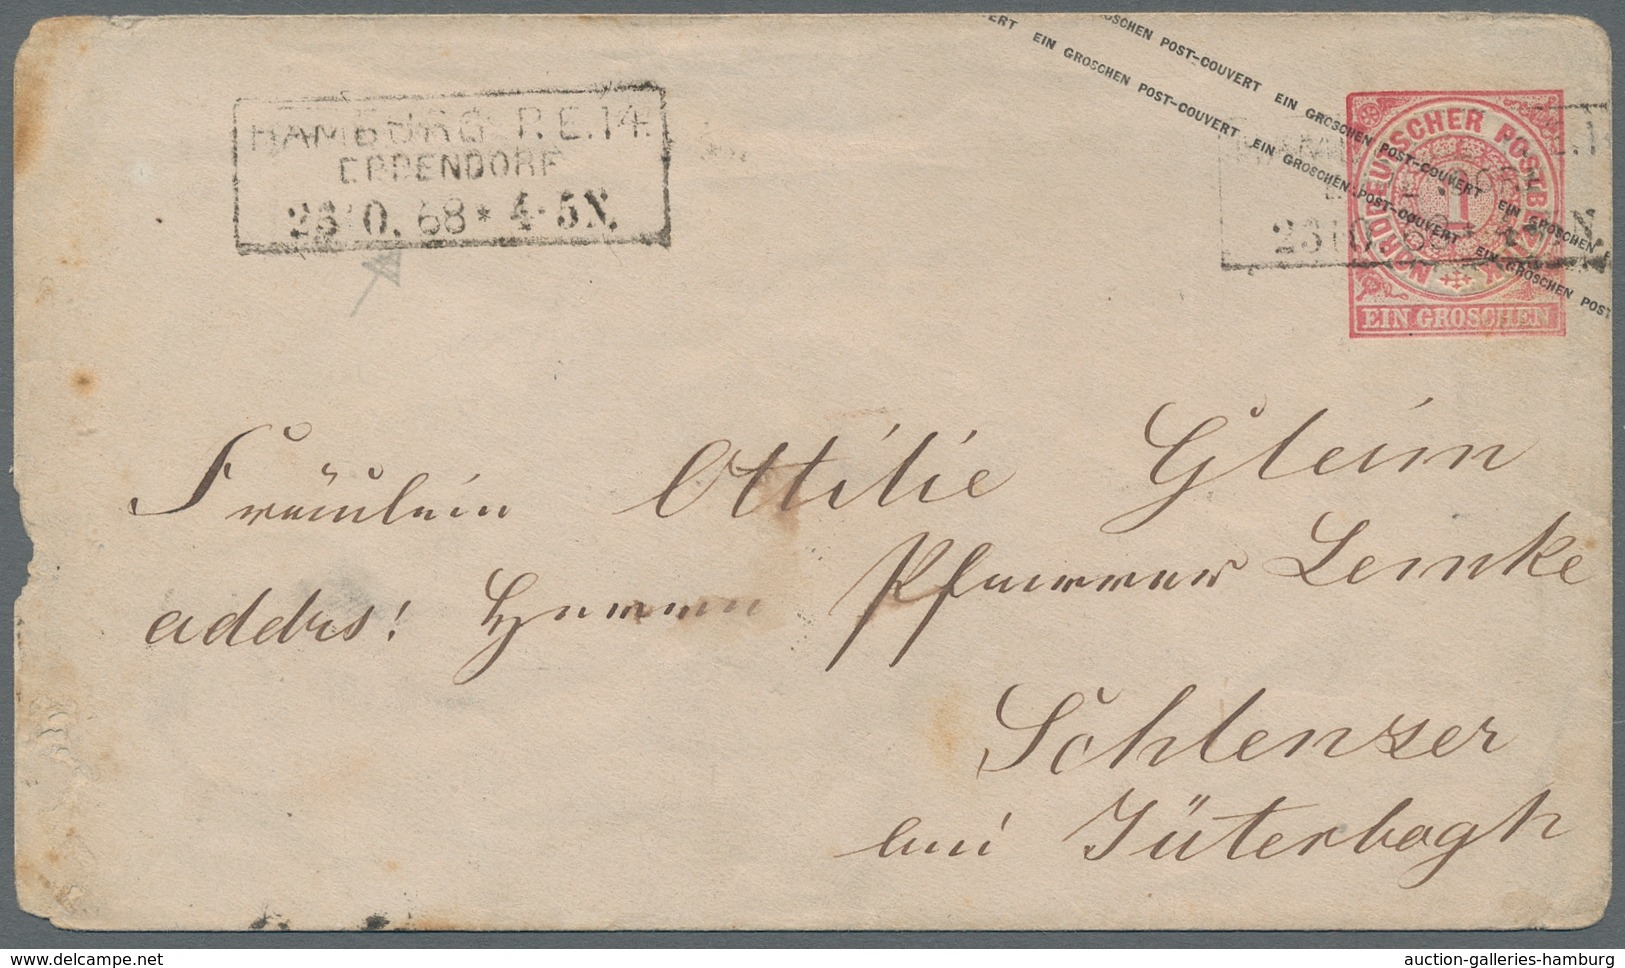 HAMBURG P.E.14.
EPPENDORF
23 10. 68 * 4-5N.
EIN GROSCHEN POST-COUVERT EIN GROSCHEN POST-COUVERT EIN GROSCHEN
EIN GROSCHEN POST-COUVERT EIN GROSCHEN POST-COUVERT EIN GROSCHEN POST
NORDDEUTSCHER POSTBEZIRK
1
EIN GROSCHEN
Fräulein Ottilie Gleim
addrs! Herrn Pfarrer Lemke
Schlenzer
bei Jüterbogk
www.delcampe.net
auction-galleries-hamburg